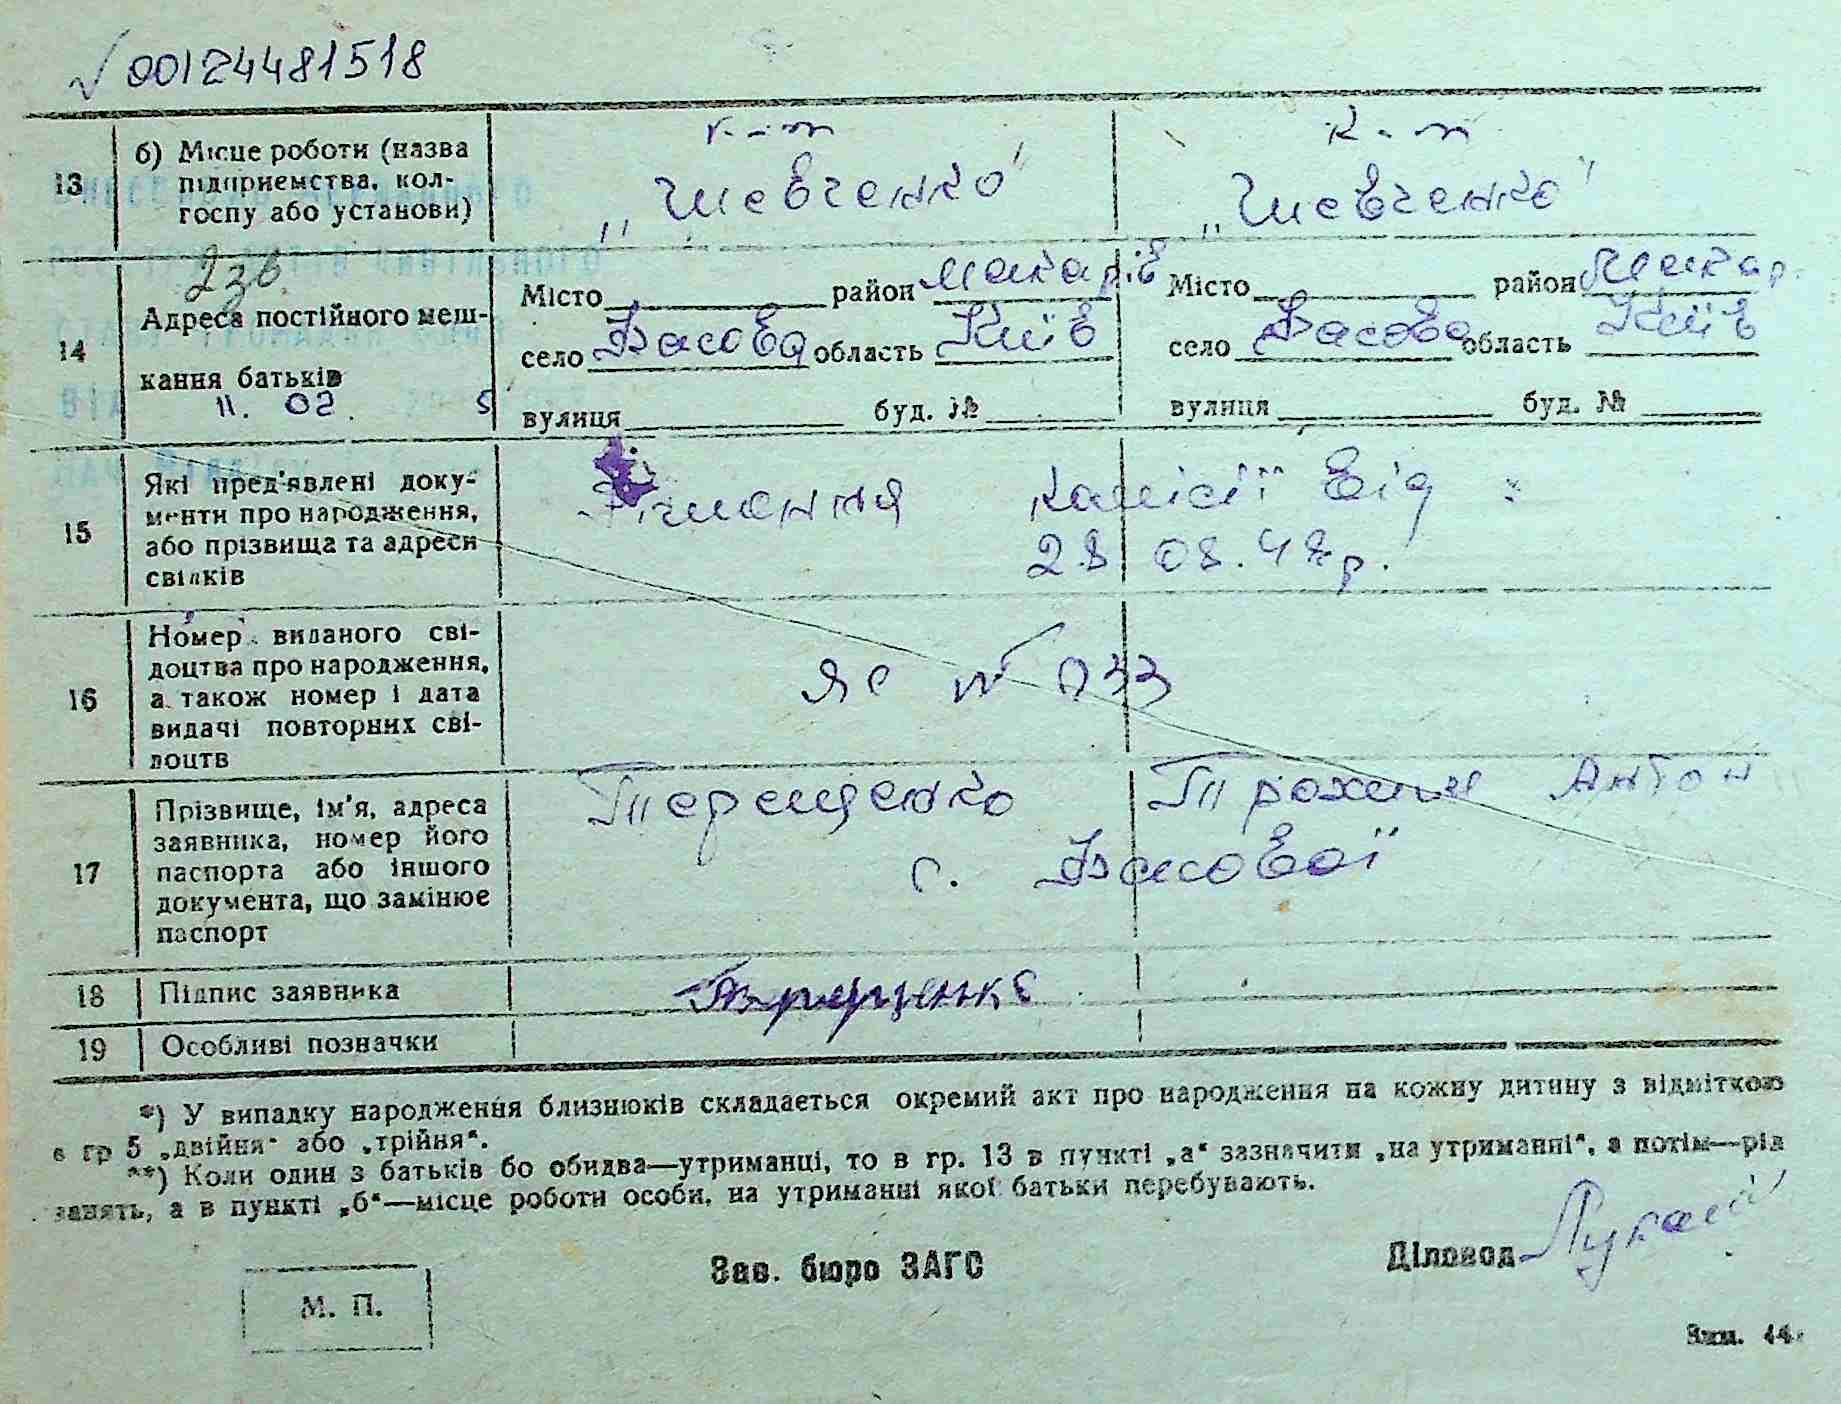 √ 00124481518
13
б) Місце роботи (назва
підприємства, кол-
госпу або установи)
к-т
„Шевченко"
к-т
„Шевченко"
14
2зв
Адреса постійного меш-
кання батьків
11. 02. 5
Місто район Макарів
село Фасова область Київ
вулиця буд. №
Місто район Макар.
село Фасова область Київ
вулиця буд. №
15
Які пред'явлені доку-
менти про народження,
або прізвища та адреси
свідків
Рішення комісії від
28 08. 48р.
16
Номер виданого сві-
доцтва про народження,
а також номер і дата
видачі повторних сві-
доцтв
ЯС № 033
17
Прізвище, ім'я, адреса
заявника, номер його
паспорта або іншого
документа, що замінює
паспорт
Терещенко Трохим Антон
с. Фасової
18
Підпис заявника
Терещенко
19
Особливі позначки
*) У випадку народження близнюків складається окремий акт про народження на кожну дитину з відміткою
в гр 5 „двійня" або „трійня".
**) Коли один з батьків бо обидва—утриманці, то в гр. 13 в пункті „а" зазначити „на утриманні", а потім—рід
занять, а в пункті „б"—місце роботи особи, на утриманні якої батьки перебувають.
М. П.
Зав. бюро ЗАГС
Діловод
Зам. 44